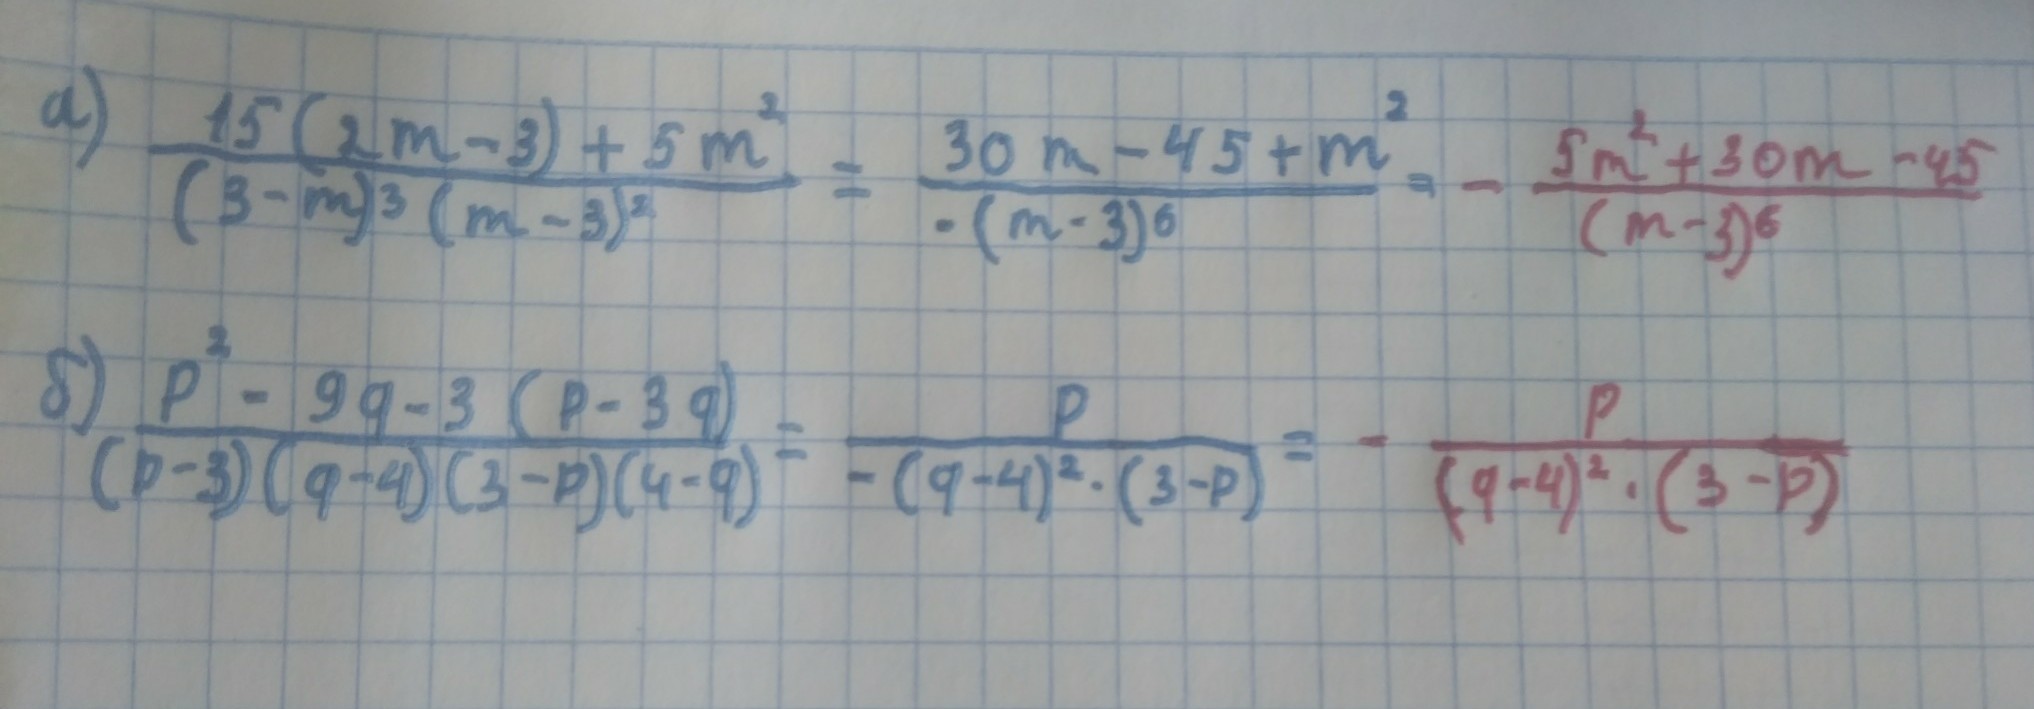 а) \frac{15(2m-3)+5m^2}{(3-m)^3(m-3)^2} = \frac{30m-45+m^2}{-(m-3)^6} = -\frac{5m^2+30m-45}{(m-3)^6}
б) \frac{p^2-9q-3(p-3q)}{(p-3)(q-4)(3-p)(4-q)} = \frac{p}{-(q-4)^2\cdot(3-p)} = -\frac{p}{(q-4)^2\cdot(3-p)}